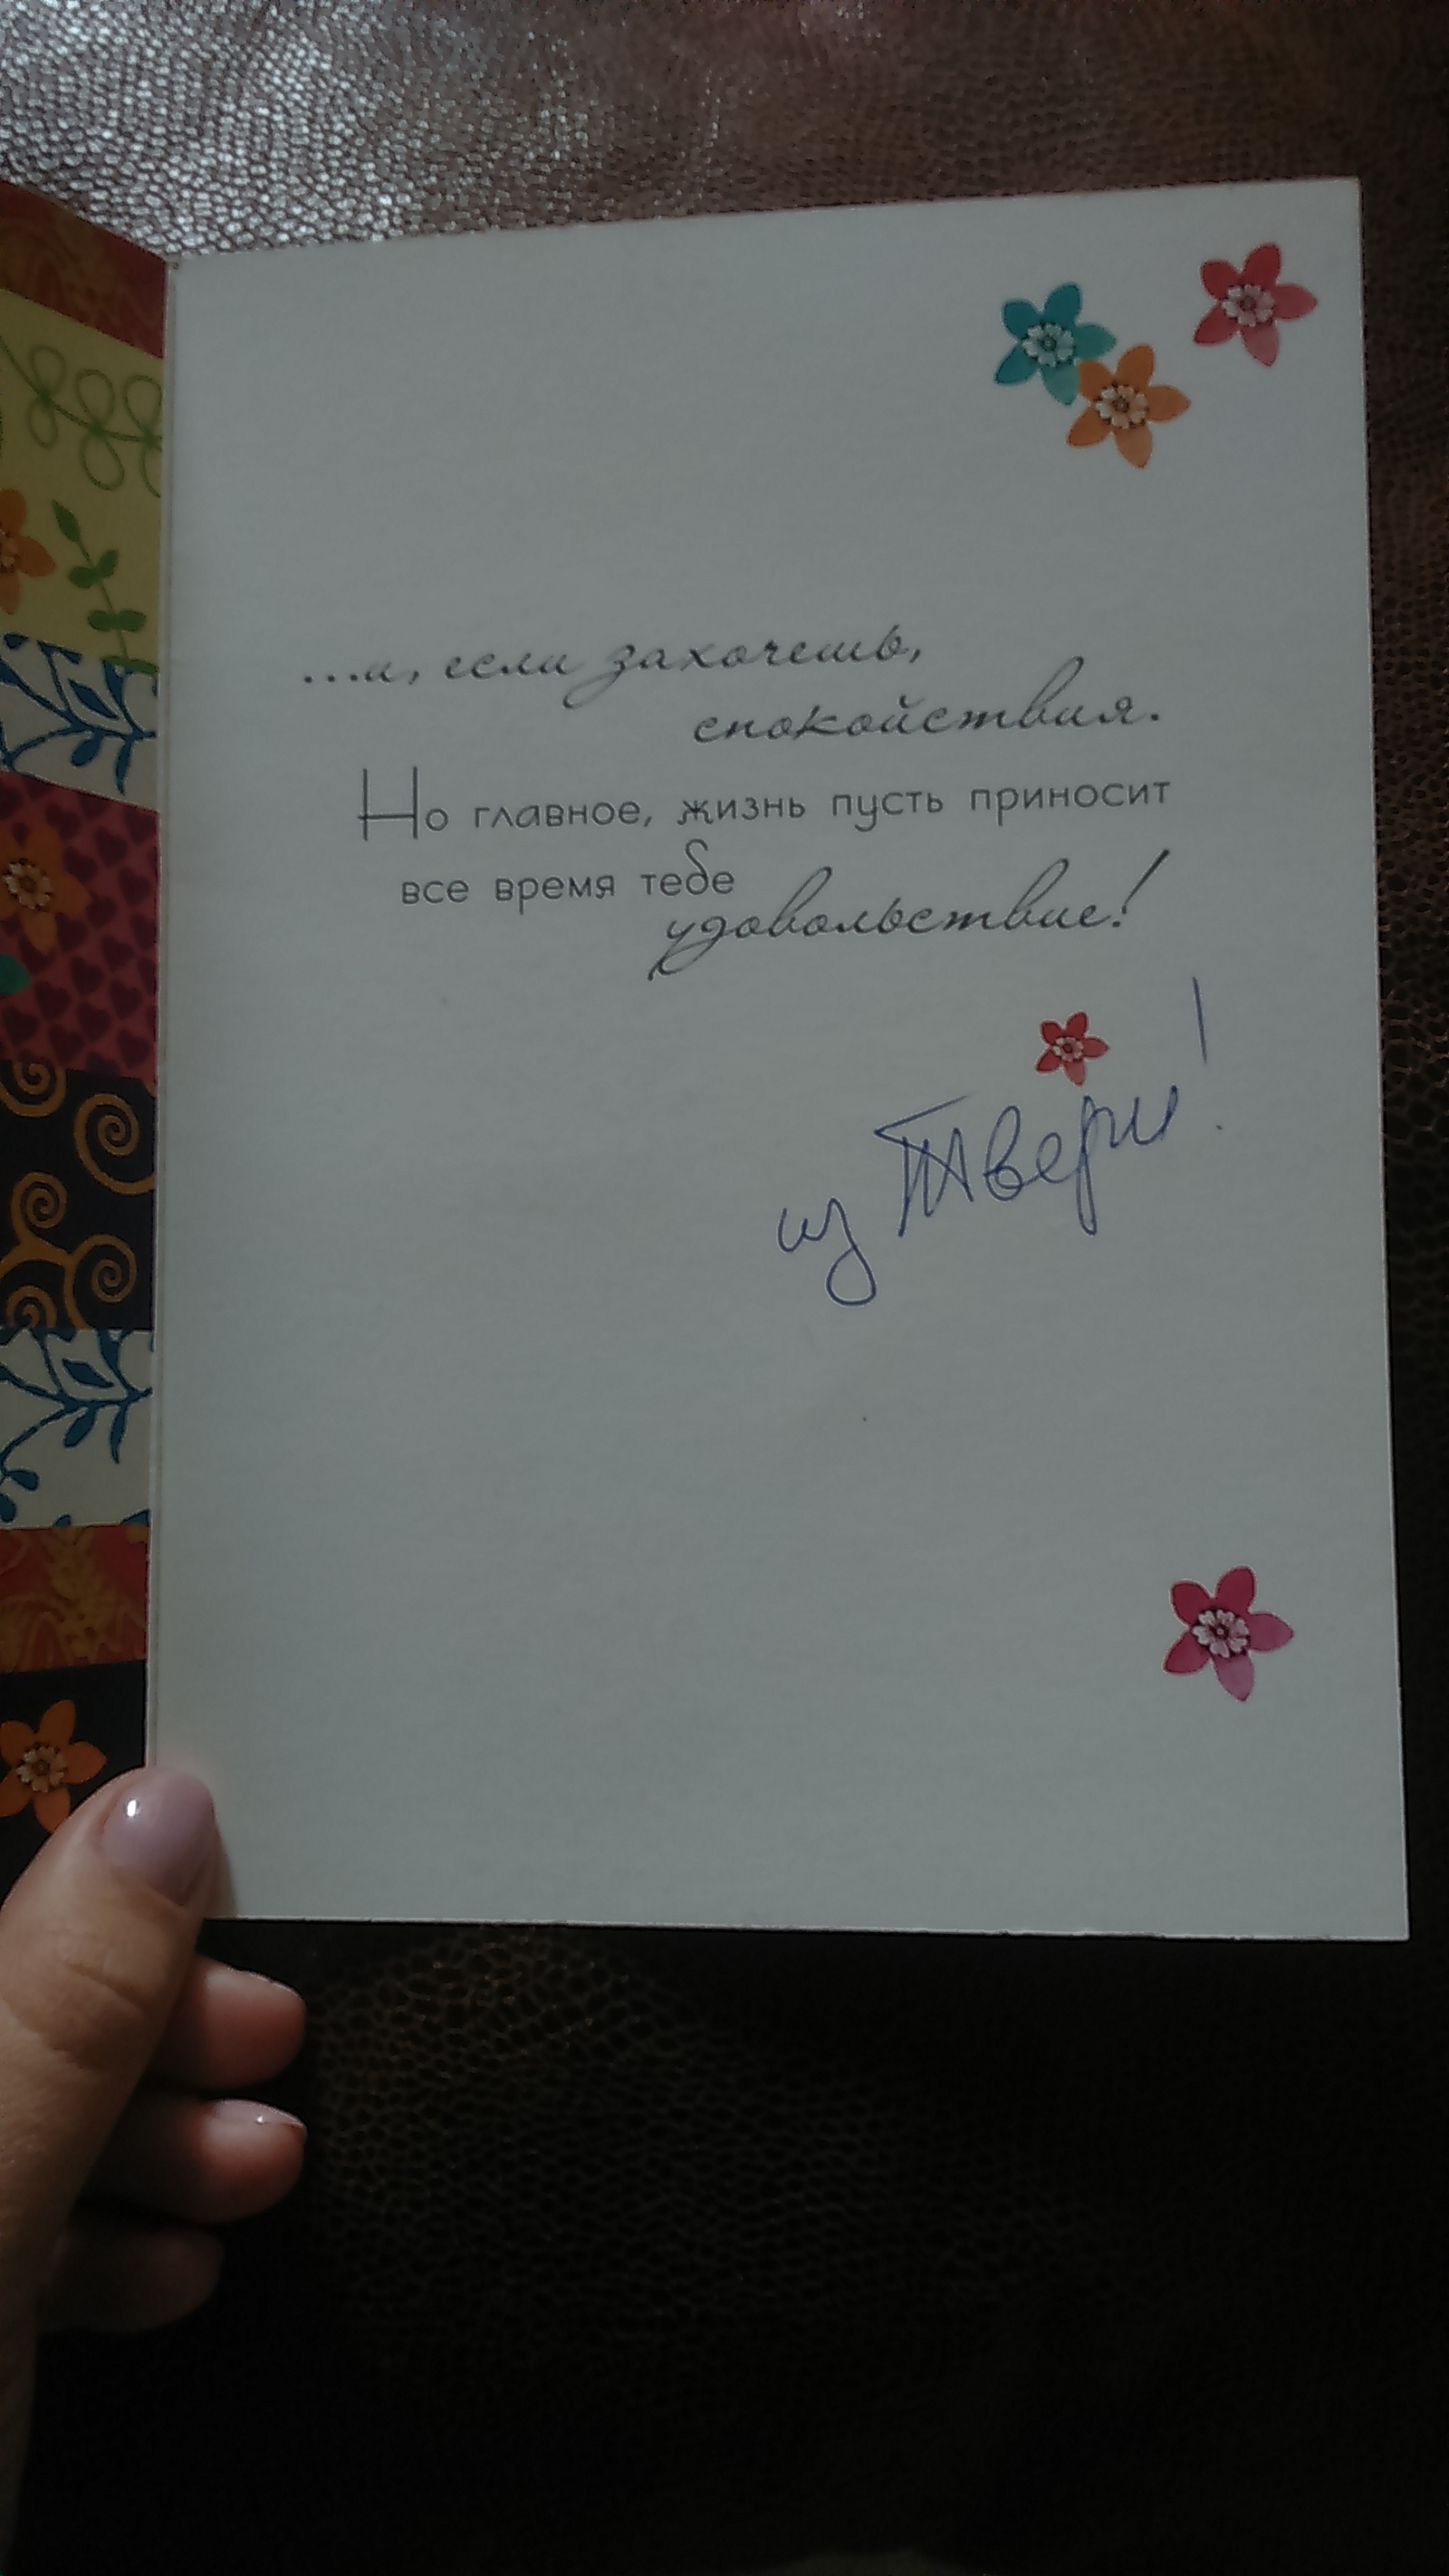 ...и, если захочешь,
спокойствия.
Но главное, жизнь пусть приносит
все время тебе
удовольствие!
из Твери!